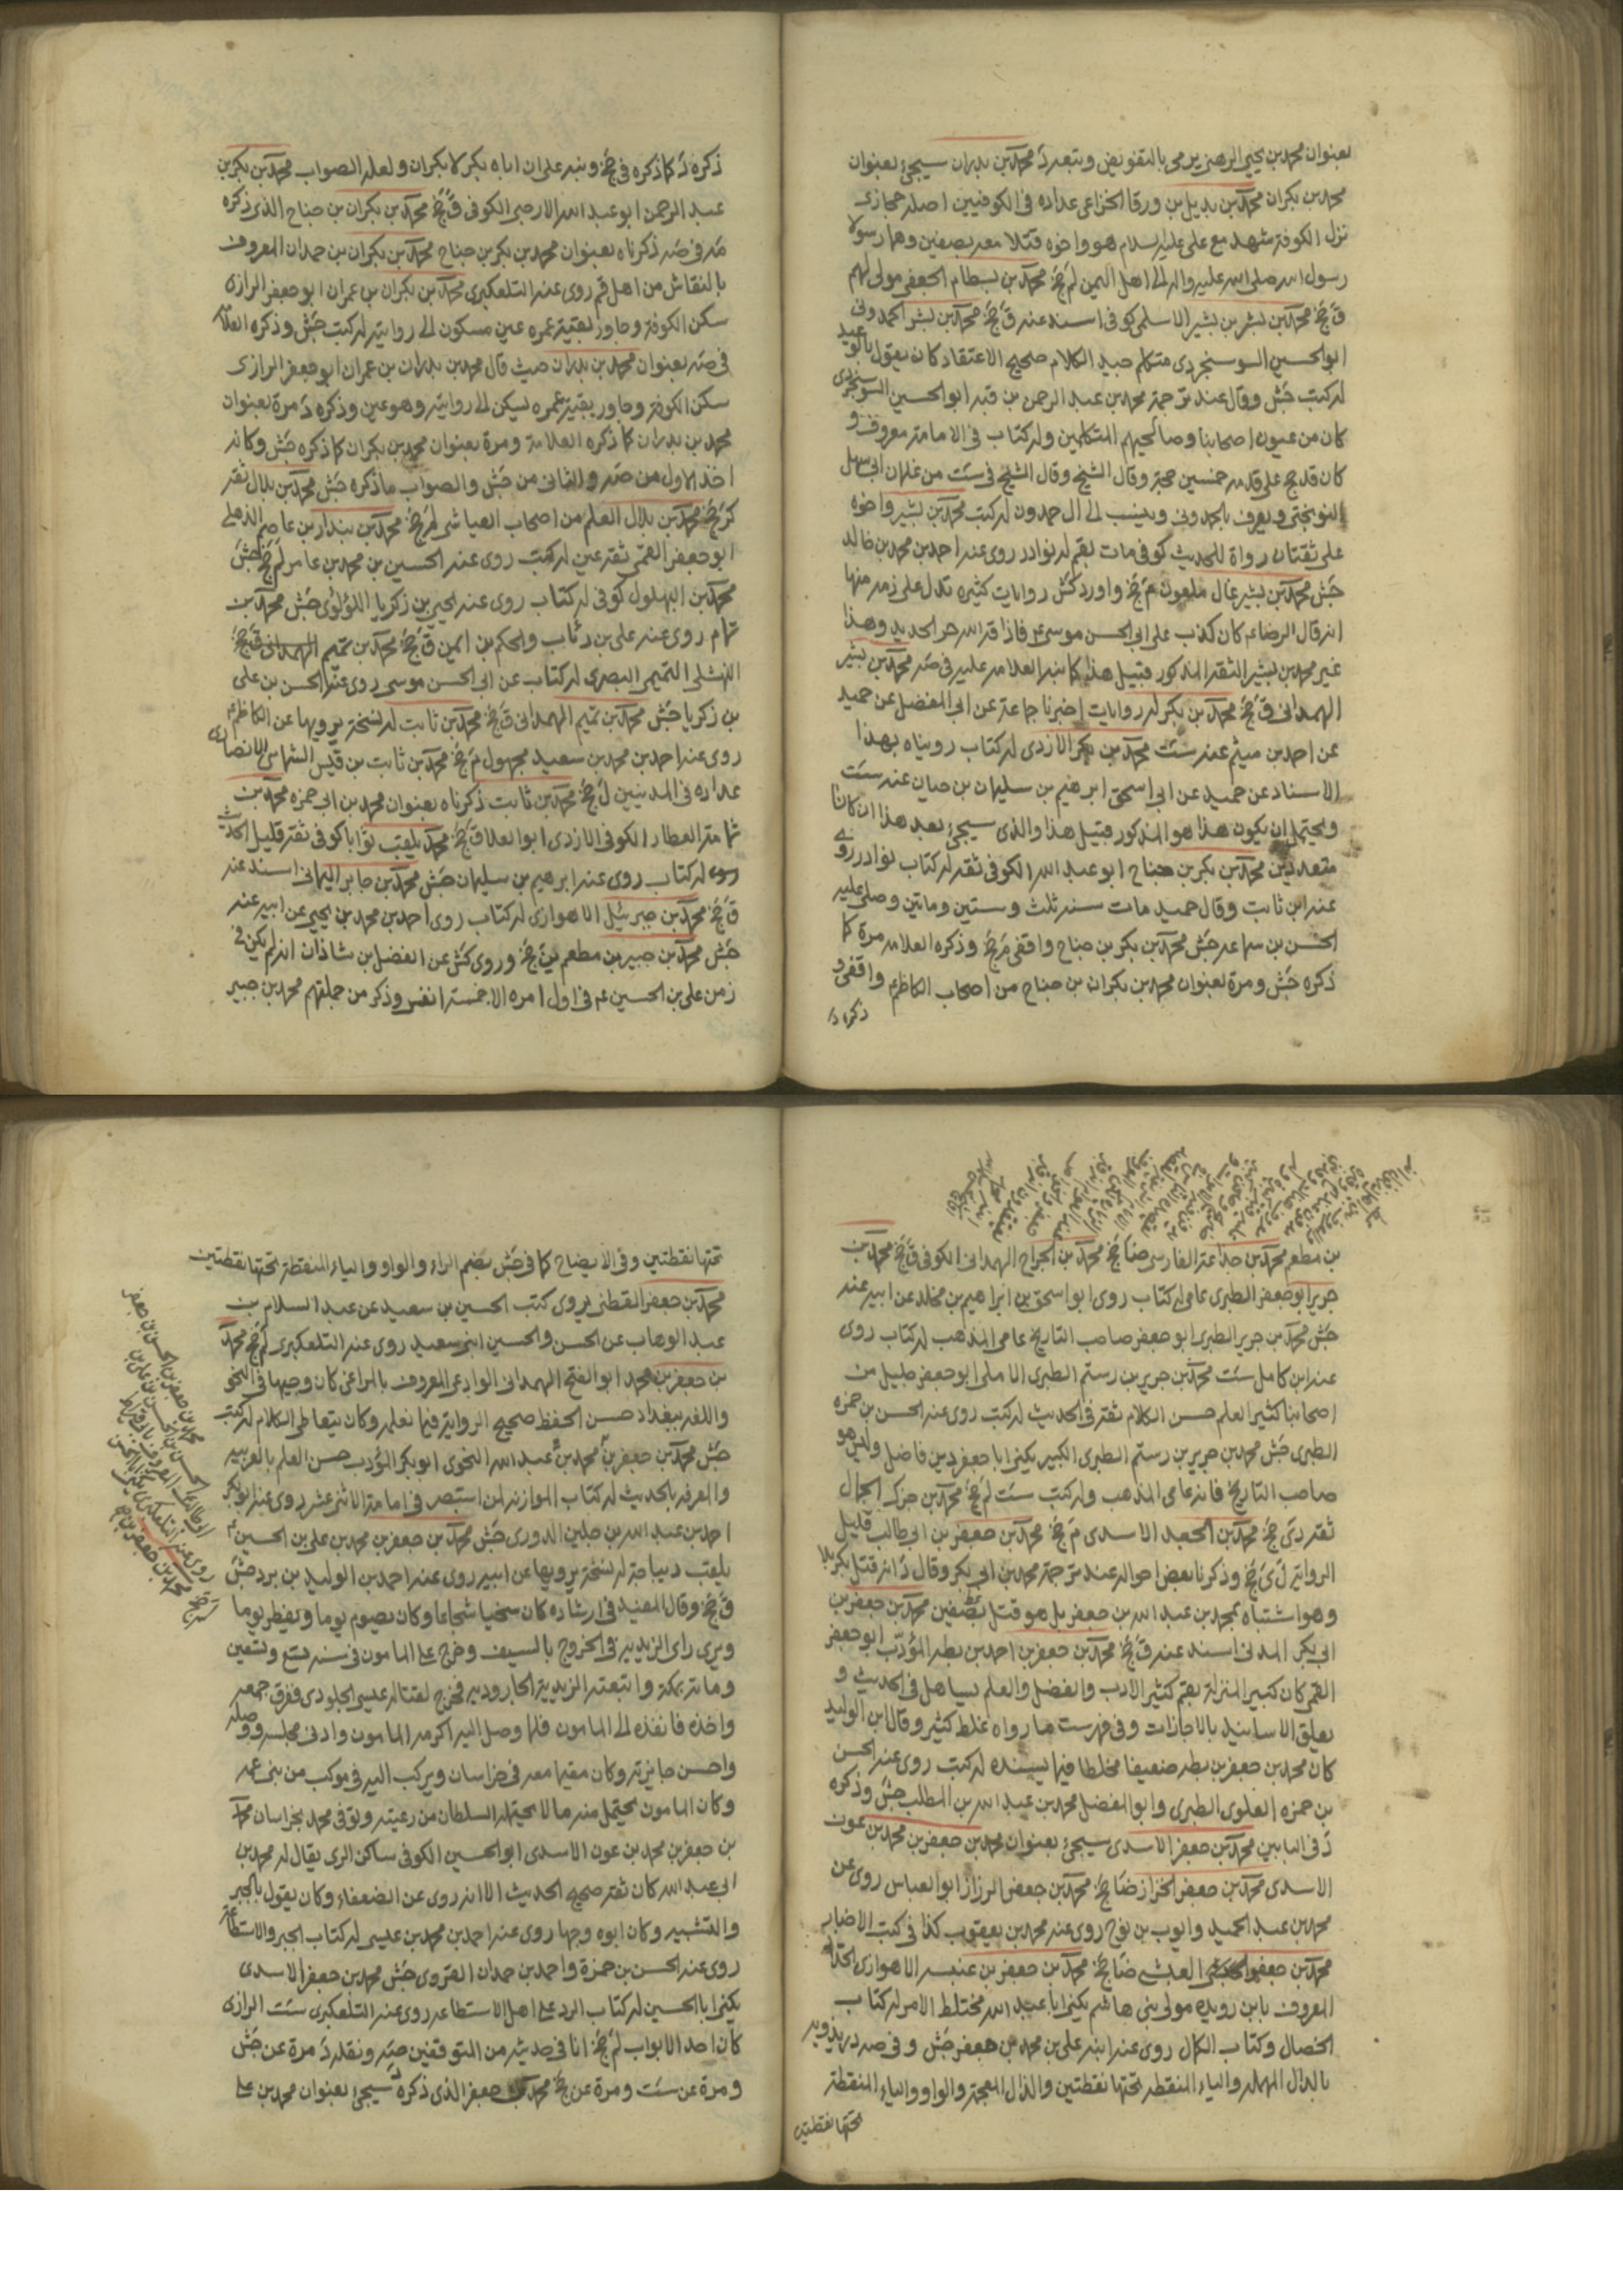 بعنوان محمد بن يحيى الرهني يرمى بالتفويض وتبعه د محمد بن بدران سيجئ بعنوان
محمد بن بكران محمد بن بديل بن ورقا الخزاعى عداده فى الكوفيين اصله حجازى
نزل الكوفة شهد مع على عليه السلام هو واخوه قتلا معه بصفين وهما رسولا
رسول الله صلى الله عليه واله الى اهل اليمن ل جخ محمد بن بسطام الجعفى مولى لهم
ق جخ محمد بن بشر بن بشير الاسلمى كوفى اسند عنه ق جخ محمد بن بشر الحمدونى
ابو الحسين السوسنجردى متكلم جيد الكلام صحيح الاعتقاد كان يقول بالوعيد
له كتب جش وقال عند ترجمة محمد بن عبد الرحمن بن قبه ابو الحسين السوسنجردى
كان من عيون اصحابنا وصالحيهم المتكلمين وله كتاب فى الامامة معروف و
كان قد حج على قدميه خمسين حجة وقال الشيخ فى ست من غلمان ابى سهل
النوبختى ويعرف بالحمدونى وينسب الى ال حمدون له كتب محمد بن بشير واخوه
على ثقتان رواة للحديث كوفى مات بقم له نوادر روى عنه احمد بن محمد بن خالد
جش محمد بن بشير غال ملعون م جخ واورد كش روايات كثيره تدل على ذمه منها
انه قال الرضا ع كان كذب على ابى الحسن موسى ع فاذاقه الله حر الحديد وهذا
غير محمد بن بشير الثقه المذكور قبيل هذا كما نبه العلامه عليه فى صه محمد بن بشير
الهمدانى ق جخ محمد بن بكر له روايات اخبرنا جماعة عن ابى المفضل عن حميد
عن احمد بن ميثم عنه ست محمد بن بكر الازدى له كتاب رويناه بهذا
الاسناد عن حميد عن ابى اسحق ابرهيم بن سليمان بن حيان عنه ست
ويحتمل ان يكون هذا هو المذكور قبيل هذا والذى سيجئ بعد هذا ان كانا
متعددين محمد بن بكر بن جناح ابو عبد الله الكوفى ثقه له كتاب نوادر روى
عنه ابن ثابت وقال حميد مات سنه ثلث وستين ومائتين وصلى عليه
الحسن بن سماعه جش محمد بن بكر بن جناح واقفى م جخ وذكره العلامه مرة كما
ذكره جش ومرة بعنوان محمد بن بكران بن جناح من اصحاب الكاظم واقفى و
ذكره د
ذكره د كما ذكره فى جخ ونبه على ان اباه بكر لا بكران ولعله الصواب محمد بن بكر بن
عبد الرحمن ابو عبد الله الارحبى الكوفى ق جخ محمد بن بكران بن جناح الذى ذكره
صه ذكرناه بعنوان محمد بن بكر بن جناح محمد بن بكران بن حمدان المعروف
بالنقاش من اهل قم روى عنه التلعكبرى محمد بن بكران بن عمران ابو جعفر الرازى
سكن الكوفة وجاور بقية عمره عين مسكون الى روايته له كتب جش وذكره العلامة
فى صه بعنوان محمد بن بدران حيث قال محمد بن بدران بن عمران ابو جعفر الرازى
سكن الكوفة وجاور بقية عمره يسكن الى روايته وهو عين وذكره د مرة بعنوان
محمد بن بدران كما ذكره العلامة ومرة بعنوان محمد بن بكران كما ذكره جش وكانه
اخذ الاول من صه والثانى من جش والصواب ما ذكره جش محمد بن بلال ثقه
كر جخ محمد بن بلال المعلم من اصحاب العياشى لم جخ محمد بن بندار بن عاصم الذهلى
ابو جعفر القمى ثقه عين له كتب روى عنه الحسين بن محمد بن عامر لم جخ جش
محمد بن البهلول كوفى له كتاب روى عنه يحيى بن زكريا اللؤلؤى جش محمد بن
تمام روى عنه على بن رئاب والحكم بن ايمن ق جخ محمد بن تميم الهمدانى ق جخ
النهشلى التميمى البصرى له كتاب عن ابى الحسن موسى روى عنه الحسن بن على
بن زكريا جش محمد بن تميم الهمدانى ق جخ محمد بن ثابت له نسخة يرويها عن الكاظم ع
روى عنه احمد بن محمد بن سعيد مجهول م جخ محمد بن ثابت بن قيس الشماس الانصارى
عداده فى المدينين ل جخ محمد بن ثابت ذكرناه بعنوان محمد بن ابى حمزه محمد بن
ثمامة العطار الكوفى الازدى ابو العلا ق جخ محمد يلقب ثوابا كوفى ثقه قليل الحديث
له كتاب روى عنه ابرهيم بن سليمان جش محمد بن جابر اليمانى اسند عنه
ق جخ محمد بن جبرئيل الاهوازى له كتاب روى احمد بن محمد بن يحيى عن ابيه عنه
جش محمد بن جبير بن مطعم ين جخ وروى كش عن الفضل بن شاذان انه لم يكن فى
زمن على بن الحسين ع فى اول امره الا خمسة انفس وذكر من جملتهم محمد بن جبير
بن مطعم محمد بن جداعة الفارسى ضا جخ محمد بن الجراح الهمدانى الكوفى ق جخ محمد بن
جرير ابو جعفر الطبرى عامى له كتاب روى ابو اسحق بن ابراهيم بن مخلد عن ابيه عنه
جش محمد بن جرير الطبرى ابو جعفر صاحب التاريخ عامى المذهب له كتاب روى
عنه ابن كامل ست محمد بن جرير بن رستم الطبرى الاملى ابو جعفر جليل من
اصحابنا كثير العلم حسن الكلام ثقه فى الحديث له كتب روى عنه الحسن بن حمزه
الطبرى جش محمد بن جرير بن رستم الطبرى الكبير يكنى ابا جعفر دين فاضل وليس هو
صاحب التاريخ فانه عامى المذهب وله كتب ست لم جخ محمد بن جزك الجمال
ثقه دى جخ محمد بن الجعد الاسدى م جخ محمد بن جعفر بن ابى طالب قليل
الرواية ل ى جخ وذكرنا بعض احواله عند ترجمة محمد بن ابى بكر وقال د انه قتل بكربلا
وهو اشتباه بمحمد بن عبد الله بن جعفر بل هو قتل بصفين محمد بن جعفر بن
ابى بكر المدنى اسند عنه ق جخ محمد بن جعفر بن احمد بن بطه المؤدب ابو جعفر
القمى كان كبير المنزلة بقم كثير الادب والفضل والعلم يساهل فى الحديث و
يعلق الاسانيد بالاجازات وفى فهرست ما رواه غلط كثير وقال ابن الوليد
كان محمد بن جعفر بن بطه ضعيفا مخلطا فيما يسنده له كتب روى عنه الحسن
بن حمزه العلوى الطبرى وابو المفضل محمد بن عبد الله بن المطلب جش وذكره
د فى البابين محمد بن جعفر الاسدى سيجئ بعنوان محمد بن جعفر بن محمد بن عون
الاسدى محمد بن جعفر الخزاز ضا جخ محمد بن جعفر الرزاز ابو العباس روى عن
محمد بن عبد الحميد وايوب بن نوح روى عنه محمد بن يعقوب كذا فى كتب الاخبار
محمد بن جعفر العتبى ضا جخ محمد بن جعفر بن عنبسه الاهوازى الحداد
المعروف بابن رويده مولى بنى هاشم يكنى ابا عبد الله مختلط الامر له كتاب
الخصال وكتاب الكمال روى عنه ابنه على بن محمد بن جعفر جش وفى صه دريذويه
بالدال المهمله والياء المنقطه تحتها نقطتين والذال المعجمة والواو والياء المنقطة
تحتها نقطتين
تحتها نقطتين وفى الايضاح كما فى جش بضم الراء والواو والياء المنقطة تحتها نقطتين
محمد بن جعفر القطنى يروى كتب الحسين بن سعيد عن عبد السلام بن
عبد الوهاب عن الحسن والحسين ابنى سعيد روى عنه التلعكبرى لم جخ محمد
بن جعفر بن محمد ابو الفتح الهمدانى الوادعى المعروف بالمراغى كان وجيها فى النحو
واللغه ببغداد حسن الحفظ صحيح الرواية فيما نعلمه وكان يتعاطى الكلام له كتب
جش محمد بن جعفر بن محمد بن عبد الله النحوى ابو بكر المؤدب حسن العلم بالعربيه
والمعرفه بالحديث له كتاب الموازنه لمن استبصر فى امامة الاثنى عشر روى عنه ابو بكر
احمد بن عبد الله بن جلين الدورى جش محمد بن جعفر بن محمد بن على بن الحسين ع
يلقب ديباجة له نسخة يرويها عن ابيه روى عنه احمد بن الوليد بن برد جش
ق جخ وقال المفيد فى ارشاده كان سخيا شجاعا وكان يصوم يوما ويفطر يوما
ويرى راى الزيديه فى الخروج بالسيف وخرج على المامون فى سنه تسع وتسعين
ومائة بمكة واتبعته الزيدية الجاروديه فخرج لقتاله عيسى الجلودى ففرق جمعه
واخذه فانفذه الى المامون فلما وصل اليه اكرمه المامون وادنى مجلسه ووصله
واحسن جايزته وكان مقيما معه فى خراسان ويركب اليه فى موكب من بنى عمه
وكان المامون يحتمل منه ما لا يحتمله السلطان من رعيته وتوفى محمد بخراسان محمد
بن جعفر بن محمد بن عون الاسدى ابو الحسين الكوفى ساكن الرى يقال له محمد بن
ابى عبد الله كان ثقه صحيح الحديث الا انه روى عن الضعفاء وكان يقول بالجبر
والتشبيه وكان ابوه وجها روى عنه احمد بن محمد بن عيسى له كتاب الجبر والاستطاعة
روى عنه الحسن بن حمزة واحمد بن حمدان القزوينى جش محمد بن جعفر الاسدى
يكنى ابا الحسين له كتاب الرد على اهل الاستطاعه روى عنه التلعكبرى ست الرازى
كان احد الابواب لم جخ انا فى حديثه من المتوقفين صه ونقله د مرة عن جش
ومرة عن ست ومرة عن جخ محمد بن جعفر الذى ذكره سيجئ بعنوان محمد بن على
محمد بن جعفر بن الحسن بن جعفر